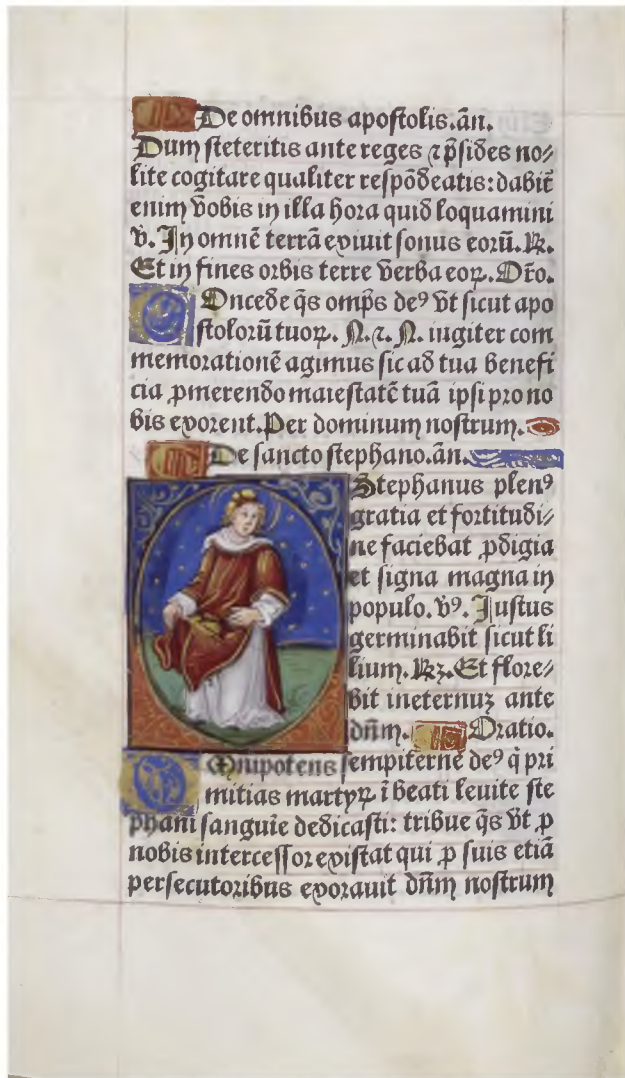 De omnibus apostolis.ãn.
Dum steteritis ante reges ⁊ p̃sides no⸗
lite cogitare qualiter respõdeatis: dabit̃
enim vobis in illa hora quid loquamini
v̓. In omnẽ terrã exiuit sonus eorũ. ꝶ.
Et in fines orbis terre verba eoꝝ. Or̃o.
COncede q̃s omp̃s deꝰ vt sicut apo
stolorũ tuoꝝ. N. ⁊. N. iugiter com
memorationẽ agimus sic ad tua benefi
cia ꝓmerendo maiestatẽ tuã ipsi pro no
bis exorent. Per dominum nostrum.
De sancto stephano.ãn.
Stephanus plenꝰ
gratia et fortitudi⸗
ne faciebat ꝓdigia
et signa magna in
populo. v̓ꝰ. Justus
germinabit sicut li
lium. ꝶꝫ. Et flore⸗
bit ineternuꝫ ante
dñm. Oratio.
OMnipotens sempiterne deꝰ q̃ pri
mitias martyꝝ ĩ beati leuite ste
phani sanguĩe dedicasti: tribue q̃s vt ꝓ
nobis intercessor existat qui ꝓ suis etiã
persecutoribus exorauit dñm nostrum